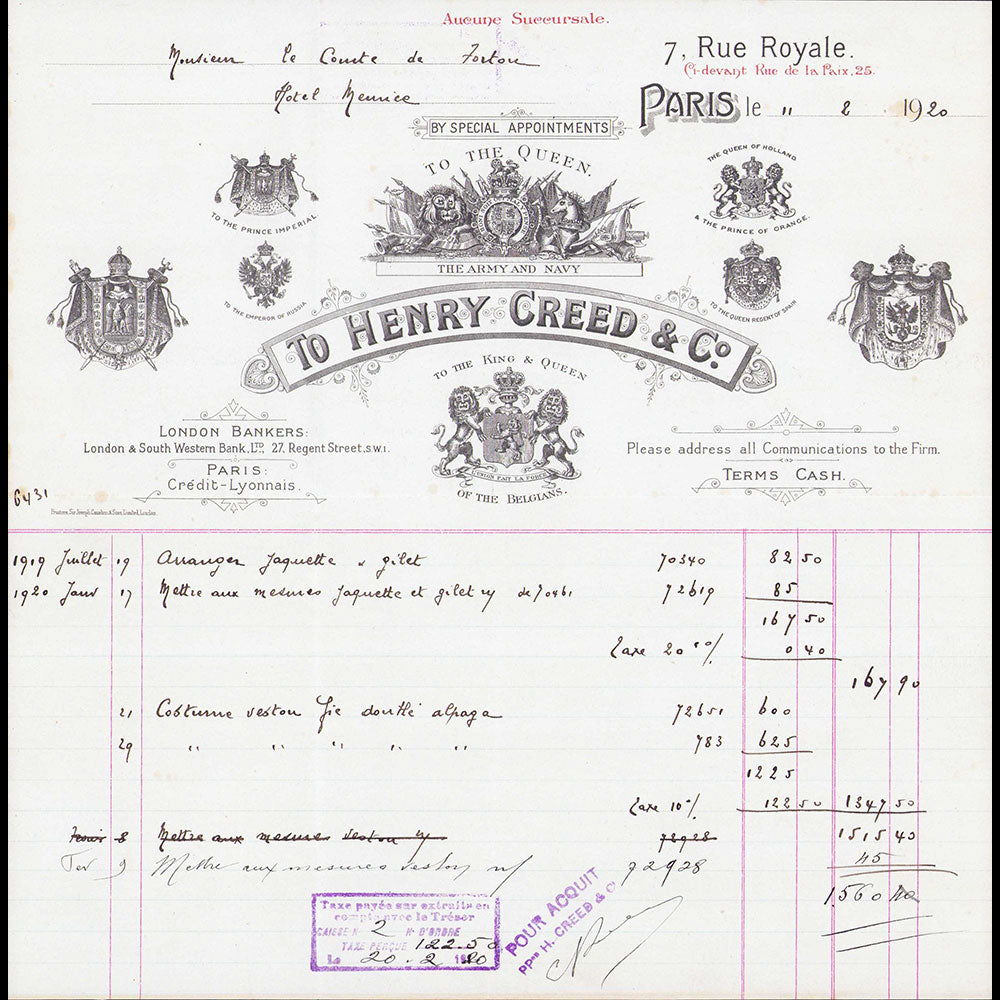 Aucune Succursale.
Monsieur le Comte de Forton
7, Rue Royale.
Ci-devant Rue de la Paix, 25.
Hotel Meurice
PARIS le " 2. 1920
BY SPECIAL APPOINTMENTS
TO THE QUEEN.
THE QUEEN OF HOLLAND
& THE PRINCE OF ORANGE.
TO THE PRINCE IMPERIAL
THE ARMY AND NAVY
TO THE EMPEROR OF RUSSIA
TO THE QUEEN REGENT OF SPAIN
TO HENRY CREED & Co.
TO THE KING & QUEEN
L'UNION FAIT LA FORCE
OF THE BELGIANS.
LONDON BANKERS:
London & South Western Bank, LTD., 27, Regent Street, S.W.1.
PARIS:
Crédit-Lyonnais.
Please address all Communications to the Firm.
TERMS CASH.
6431
Printers, Sir Joseph Causton & Sons Limited, London.
1919 Juillet 19 Arranger Jaquette & gilet 70340 82 50
1920 Janv 17 Mettre aux mesures Jaquette et gilet de 70461 72619 85
167 50
Taxe 20 % 0 40
167 90
21 Costume veston doublé alpaga 72651 600
29 " " " " " 783 625
1225
Taxe 10 % 122 50 1347 50
8 Mettre aux mesures veston 72928 1515 40
Fev 9 Mettre aux mesures veston 72928 45
1.560
Taxe payée sur extraits en
compte avec le Trésor
CAISSE N° 2 N° D'ORDRE
TAXE PERÇUE 122.50
Le 20 - 2 1920
POUR ACQUIT
PPon H. CREED & Co